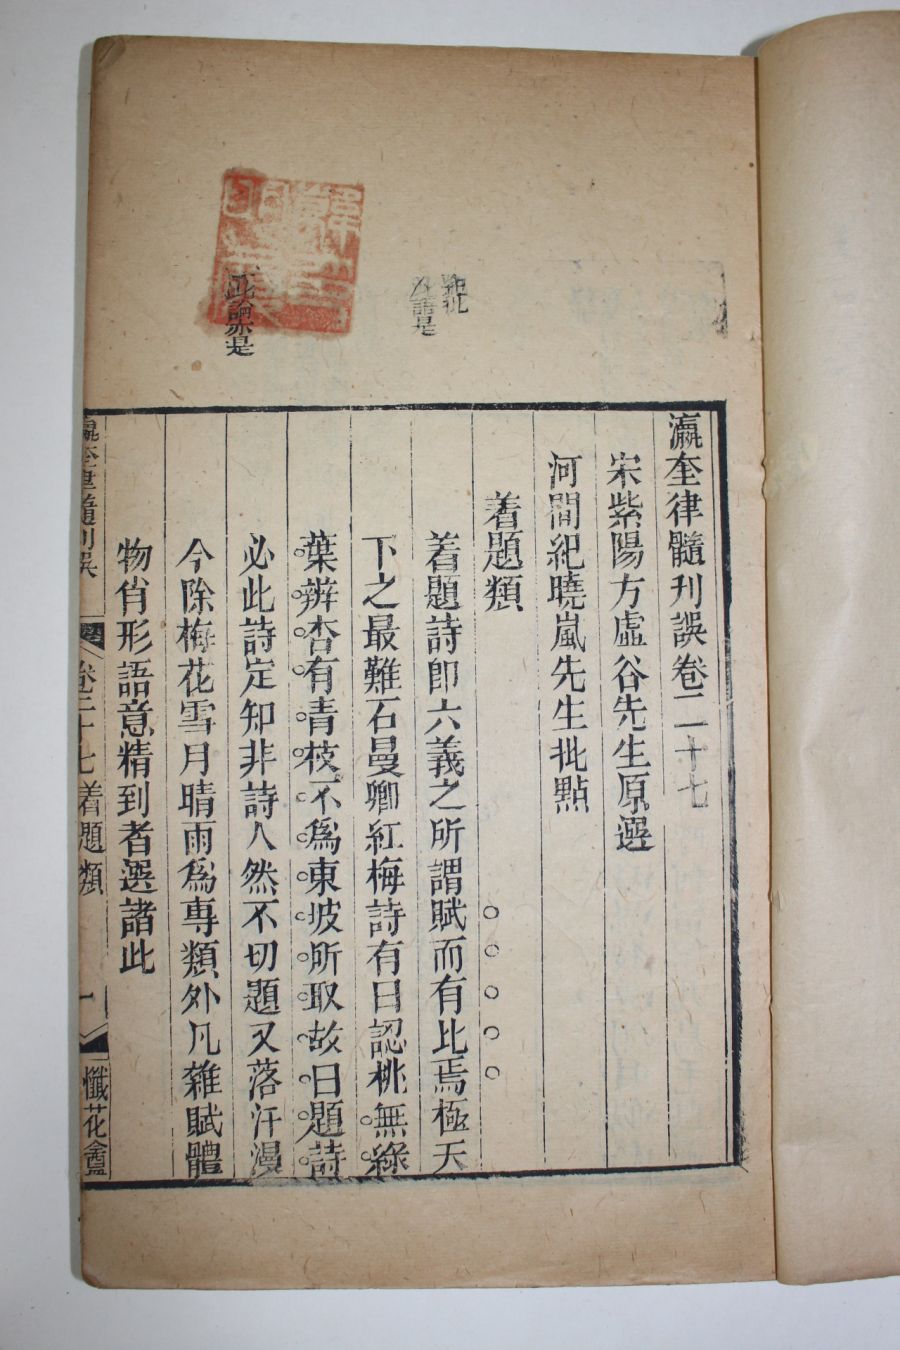 瀛奎律髓刋誤卷二十七
宋紫陽方虛谷先生原選
河間紀曉嵐先生批點
着題類
着題詩即六義之所謂賦而有比焉極天
下之最難石曼卿紅梅詩有曰認桃無綠
葉辨杏有青枝不爲東坡所取故曰題詩
必此詩定知非詩人然不切題又落汗漫
今除梅花雪月晴雨爲專類外凡雜賦體
物肖形語意精到者選諸此
此論亦是
語是
瀛奎律髓刋誤
卷二十七 着題類
一
懺花盦